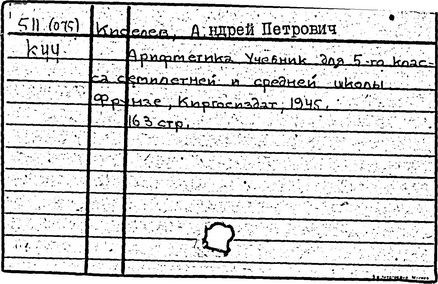 511.(075)
К44
Киселев, Андрей Петрович
Арифметика Учебник для 5-го клас-
са семилетней и средней школы
Фрунзе, Киргосиздат, 1945.
163 стр.